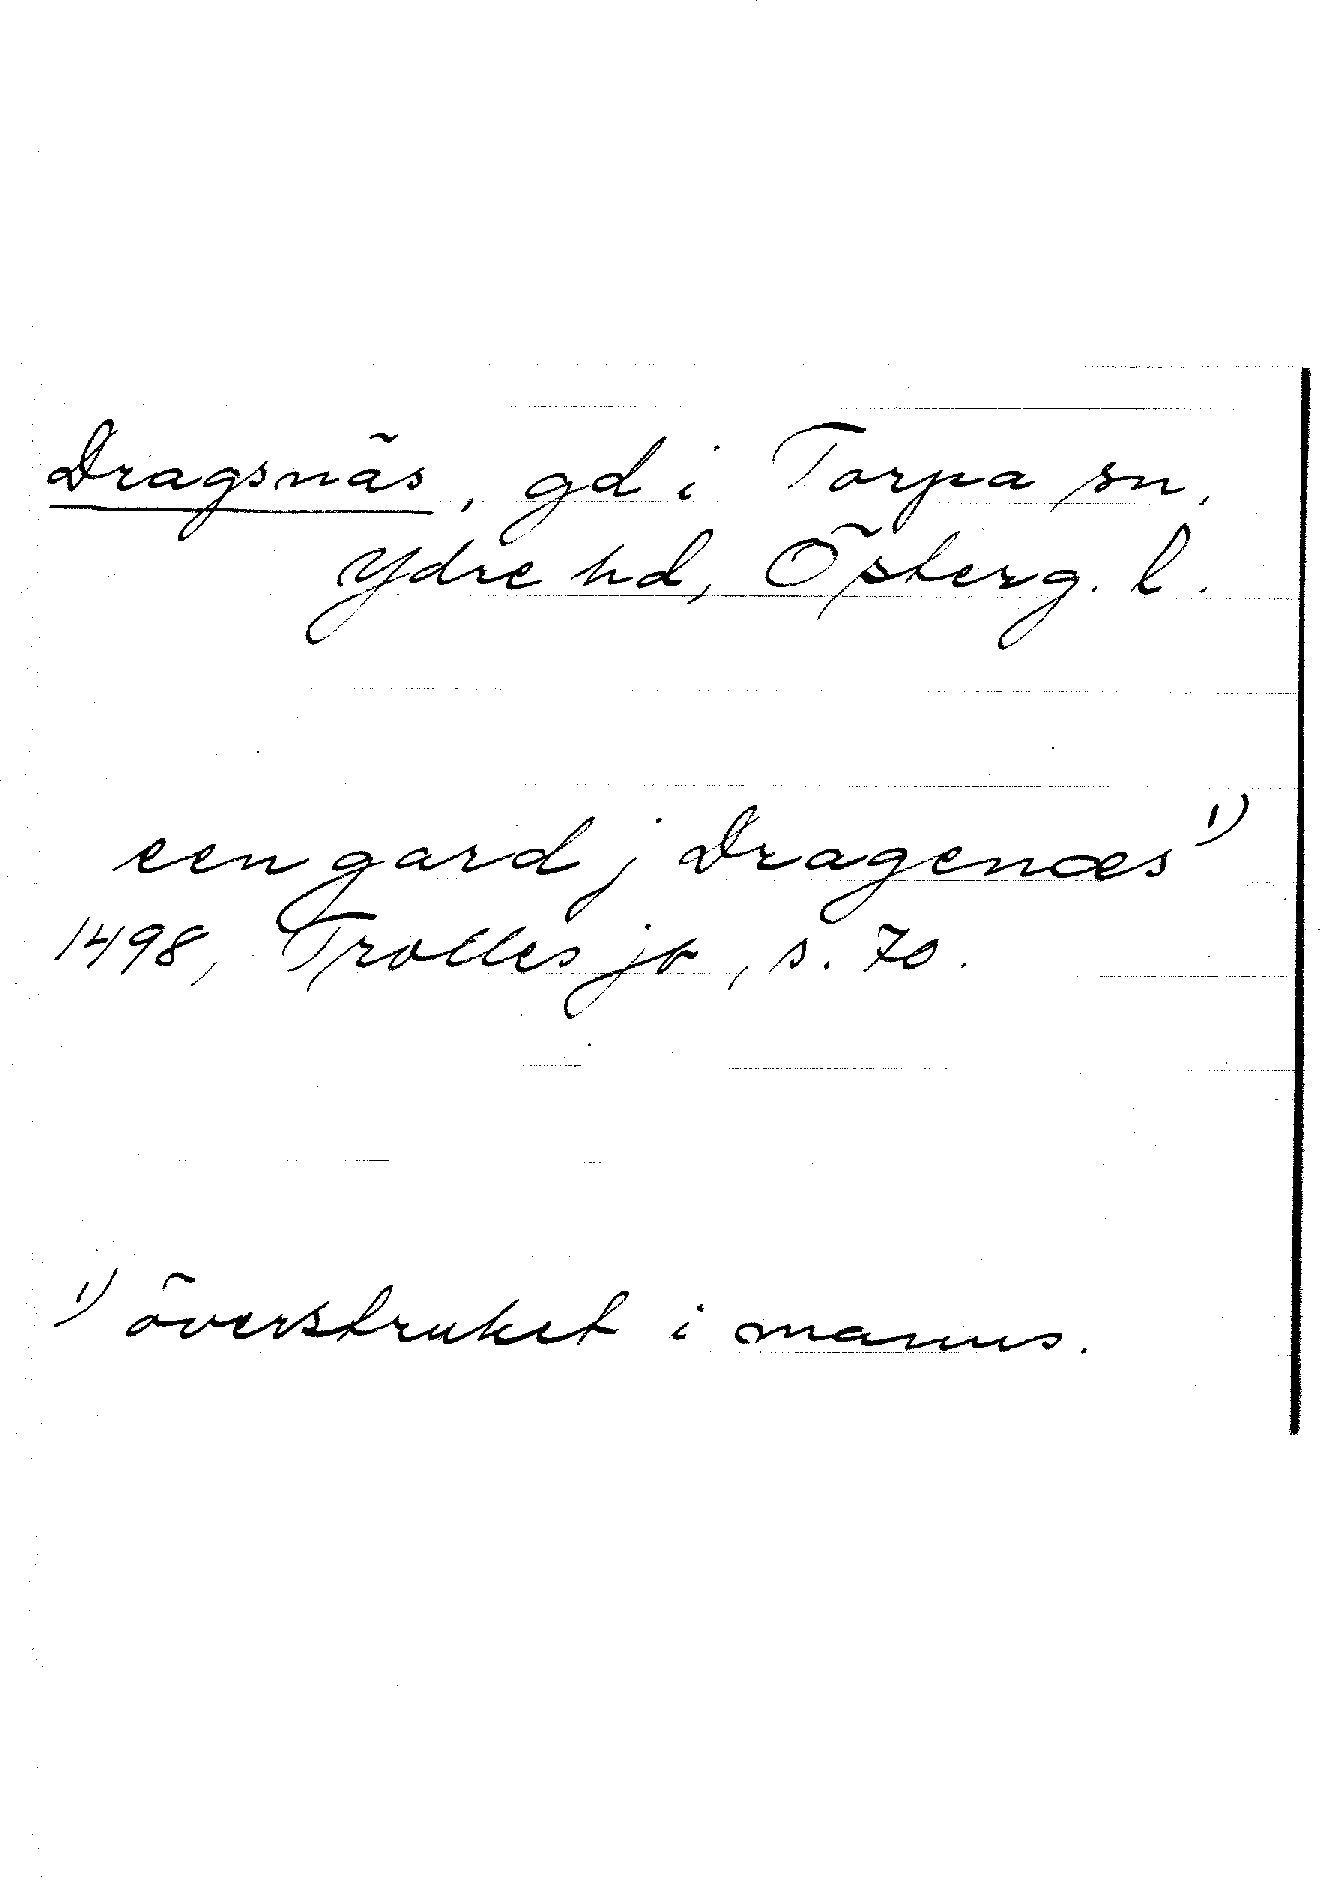 Dragsnäs, gd i Torpa sn,
Ydre hd, Österg. l.
een gard j Dragenæs ¹⁾
1498, Trolles jb, s. 70.
¹⁾ överstruket i manus.